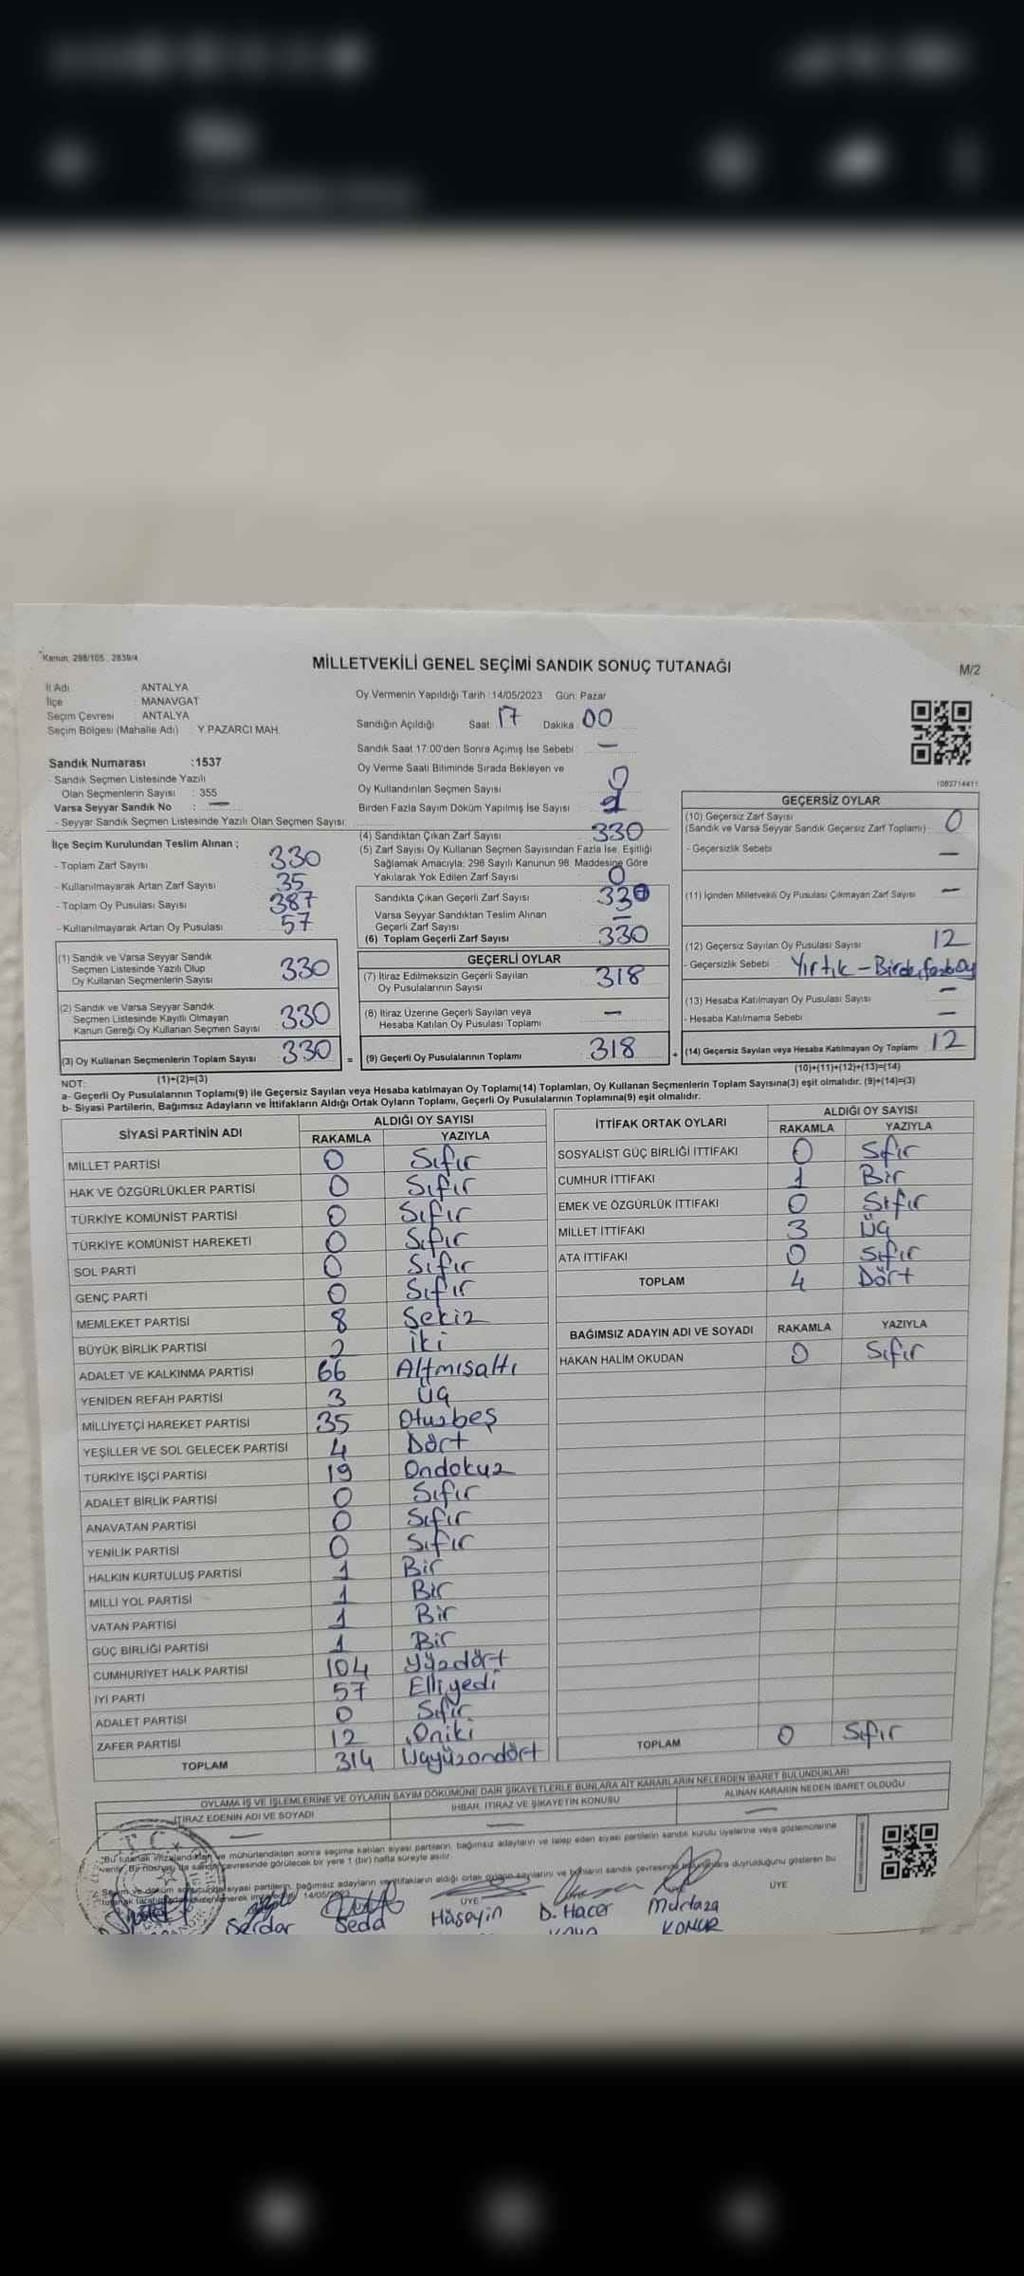 Kanun: 298/105, 2839/4
MİLLETVEKİLİ GENEL SEÇİMİ SANDIK SONUÇ TUTANAĞI
M/2
İl Adı : ANTALYA
İlçe : MANAVGAT
Seçim Çevresi : ANTALYA
Seçim Bölgesi (Mahalle Adı) : Y.PAZARCI MAH.
Oy Vermenin Yapıldığı Tarih : 14/05/2023 Gün: Pazar
Sandığın Açıldığı Saat: 17 Dakika 00
Sandık Saat 17:00'den Sonra Açımış İse Sebebi : —
Oy Verme Saati Bitiminde Sırada Bekleyen ve
Oy Kullandırılan Seçmen Sayısı : 0
Birden Fazla Sayım Döküm Yapılmış İse Sayısı
Sandık Numarası :1537
- Sandık Seçmen Listesinde Yazılı
Olan Seçmenlerin Sayısı : 355
Varsa Seyyar Sandık No : —
- Seyyar Sandık Seçmen Listesinde Yazılı Olan Seçmen Sayısı:
İlçe Seçim Kurulundan Teslim Alınan ;
- Toplam Zarf Sayısı 330
- Kullanılmayarak Artan Zarf Sayısı 35
- Toplam Oy Pusulası Sayısı 387
- Kullanılmayarak Artan Oy Pusulası 57
(1) Sandık ve Varsa Seyyar Sandık
Seçmen Listesinde Yazılı Olup
Oy Kullanan Seçmenlerin Sayısı 330
(2) Sandık ve Varsa Seyyar Sandık
Seçmen Listesinde Kayıtlı Olmayan
Kanun Gereği Oy Kullanan Seçmen Sayısı 330
(3) Oy Kullanan Seçmenlerin Toplam Sayısı 330 =
(1)+(2)=(3)
(4) Sandıktan Çıkan Zarf Sayısı 330
(5) Zarf Sayısı Oy Kullanan Seçmen Sayısından Fazla İse, Eşitliği
Sağlamak Amacıyla; 298 Sayılı Kanunun 98. Maddesine Göre
Yakılarak Yok Edilen Zarf Sayısı 0
Sandıkta Çıkan Geçerli Zarf Sayısı 330
Varsa Seyyar Sandıktan Teslim Alınan
Geçerli Zarf Sayısı —
(6) Toplam Geçerli Zarf Sayısı 330
GEÇERLİ OYLAR
(7) İtiraz Edilmeksizin Geçerli Sayılan
Oy Pusulalarının Sayısı 318
(8) İtiraz Üzerine Geçerli Sayılan veya
Hesaba Katılan Oy Pusulası Toplamı —
(9) Geçerli Oy Pusulalarının Toplamı 318 +
1082714411
GEÇERSİZ OYLAR
(10) Geçersiz Zarf Sayısı
(Sandık ve Varsa Seyyar Sandık Geçersiz Zarf Toplamı) 0
- Geçersizlik Sebebi —
(11) İçinden Milletvekili Oy Pusulası Çıkmayan Zarf Sayısı —
(12) Geçersiz Sayılan Oy Pusulası Sayısı 12
- Geçersizlik Sebebi Yırtık - Birden fazla oy
(13) Hesaba Katılmayan Oy Pusulası Sayısı —
- Hesaba Katılmama Sebebi —
(14) Geçersiz Sayılan veya Hesaba Katılmayan Oy Toplamı 12
(10)+(11)+(12)+(13)=(14)
NOT:
a- Geçerli Oy Pusulalarının Toplamı(9) ile Geçersiz Sayılan veya Hesaba katılmayan Oy Toplamı(14) Toplamları, Oy Kullanan Seçmenlerin Toplam Sayısına(3) eşit olmalıdır. (9)+(14)=(3)
b- Siyasi Partilerin, Bağımsız Adayların ve İttifakların Aldığı Ortak Oyların Toplamı, Geçerli Oy Pusulalarının Toplamına(9) eşit olmalıdır.
SİYASİ PARTİNİN ADI ALDIĞI OY SAYISI
RAKAMLA YAZIYLA
MİLLET PARTİSİ 0 Sıfır
HAK VE ÖZGÜRLÜKLER PARTİSİ 0 Sıfır
TÜRKİYE KOMÜNİST PARTİSİ 0 Sıfır
TÜRKİYE KOMÜNİST HAREKETİ 0 Sıfır
SOL PARTİ 0 Sıfır
GENÇ PARTİ 0 Sıfır
MEMLEKET PARTİSİ 8 Sekiz
BÜYÜK BİRLİK PARTİSİ 2 İki
ADALET VE KALKINMA PARTİSİ 66 Altmışaltı
YENİDEN REFAH PARTİSİ 3 Üç
MİLLİYETÇİ HAREKET PARTİSİ 35 Otuzbeş
YEŞİLLER VE SOL GELECEK PARTİSİ 4 Dört
TÜRKİYE İŞÇİ PARTİSİ 19 Ondokuz
ADALET BİRLİK PARTİSİ 0 Sıfır
ANAVATAN PARTİSİ 0 Sıfır
YENİLİK PARTİSİ 0 Sıfır
HALKIN KURTULUŞ PARTİSİ 1 Bir
MİLLİ YOL PARTİSİ 1 Bir
VATAN PARTİSİ 1 Bir
GÜÇ BİRLİĞİ PARTİSİ 1 Bir
CUMHURİYET HALK PARTİSİ 104 Yüzdört
İYİ PARTİ 57 Elliyedi
ADALET PARTİSİ 0 Sıfır
ZAFER PARTİSİ 12 Oniki
TOPLAM 314 Üçyüzondört
İTTİFAK ORTAK OYLARI ALDIĞI OY SAYISI
RAKAMLA YAZIYLA
SOSYALİST GÜÇ BİRLİĞİ İTTİFAKI 0 Sıfır
CUMHUR İTTİFAKI 1 Bir
EMEK VE ÖZGÜRLÜK İTTİFAKI 0 Sıfır
MİLLET İTTİFAKI 3 Üç
ATA İTTİFAKI 0 Sıfır
TOPLAM 4 Dört
BAĞIMSIZ ADAYIN ADI VE SOYADI RAKAMLA YAZIYLA
HAKAN HALİM OKUDAN 0 Sıfır
TOPLAM 0 Sıfır
OYLAMA İŞ VE İŞLEMLERİNE VE OYLARIN SAYIM DÖKÜMÜNE DAİR ŞİKAYETLERLE BUNLARA AİT KARARLARIN NELERDEN İBARET BULUNDUKLARI
İTİRAZ EDENİN ADI VE SOYADI İHBAR, İTİRAZ VE ŞİKAYETİN KONUSU ALINAN KARARIN NEDEN İBARET OLDUĞU
— — —
T.C.
"Bu tutanak imzalandıktan ve mühürlendikten sonra seçime katılan siyasi partilerin, bağımsız adayların ve talep eden siyasi partilerin sandık kurulu üyelerine veya gözlemcilerine
verilir. Bir nüshası da sandık çevresinde görülecek bir yere 1 (bir) hafta süreyle asılır.
14/05/2023
ÜYE ÜYE
Serdar Seda Hüseyin D. Hacer Murtaza
KONUR